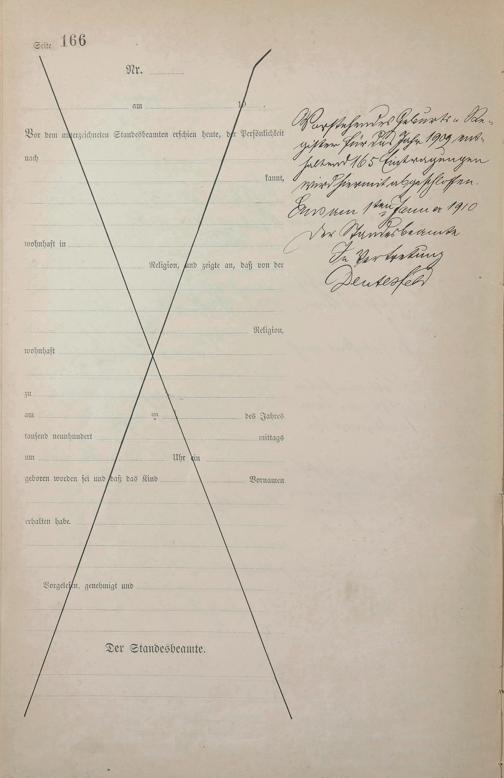 Seite 166
Nr.
am 19 .
Vor dem unterzeichneten Standesbeamten erschien heute, der Persönlichkeit
nach
kannt,
wohnhaft in
Religion, und zeigte an, daß von der
Religion,
wohnhaft
zu
am en des Jahres
tausend neunhundert mittags
um Uhr ein
geboren worden sei und daß das Kind Vornamen
erhalten habe.
Vorgelesen, genehmigt und
Der Standesbeamte.
Vorstehendes Geburts-Re-
gister für das Jahr 1909 ent-
haltend 165 Eintragungen
wird hiermit abgeschlossen.
am 1ten Januar 1910
Der Standesbeamte
In Vertretung